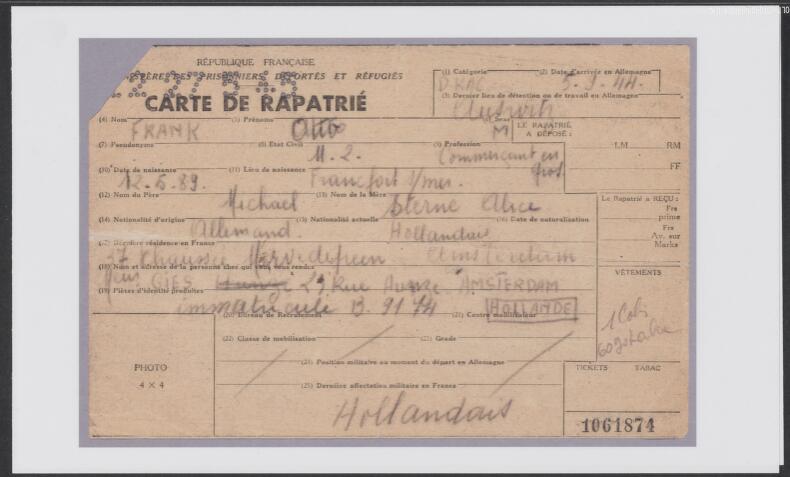 RÉPUBLIQUE FRANÇAISE
PRISONNIERS, DÉPORTÉS ET RÉFUGIÉS
CARTE DE RAPATRIÉ
(1) Catégorie (2) Date d'arrivée en Allemagne
5.9.44.
(3) Dernier lieu de détention ou de travail en Allemagne
(4) Nom FRANK (5) Prénoms Otto M
LE RAPATRIÉ A DÉPOSÉ :
(7) Pseudonyme (8) Etat Civil M. 2. (9) Profession Commerçant en gros.
LM RM
FF
(10) Date de naissance 12.5.89. (11) Lieu de naissance Francfort s/mer.
(12) Nom du Père Michael (13) Nom de la Mère Sterne Alice
Le Rapatrié a REÇU :
Frs prime
Frs Av. sur Marks
(14) Nationalité d'origine Allemand. (15) Nationalité actuelle Hollandais (16) Date de naturalisation
(17) Dernière résidence en France
37 Chaussée Amsterdam
(18) Nom et adresse de la personne chez qui vous vous rendez
GIES 29 Rue AMSTERDAM
HOLLANDE
(19) Pièces d'identité produites immatriculé B. 9174
VÊTEMENTS
1 Colis
(20) Bureau de Recrutement (21) Centre mobilisateur
(22) Classe de mobilisation (23) Grade
(24) Position militaire au moment du départ en Allemagne
(25) Dernière affectation militaire en France
PHOTO
4 × 4
Hollandais
TICKETS TABAC
1061874